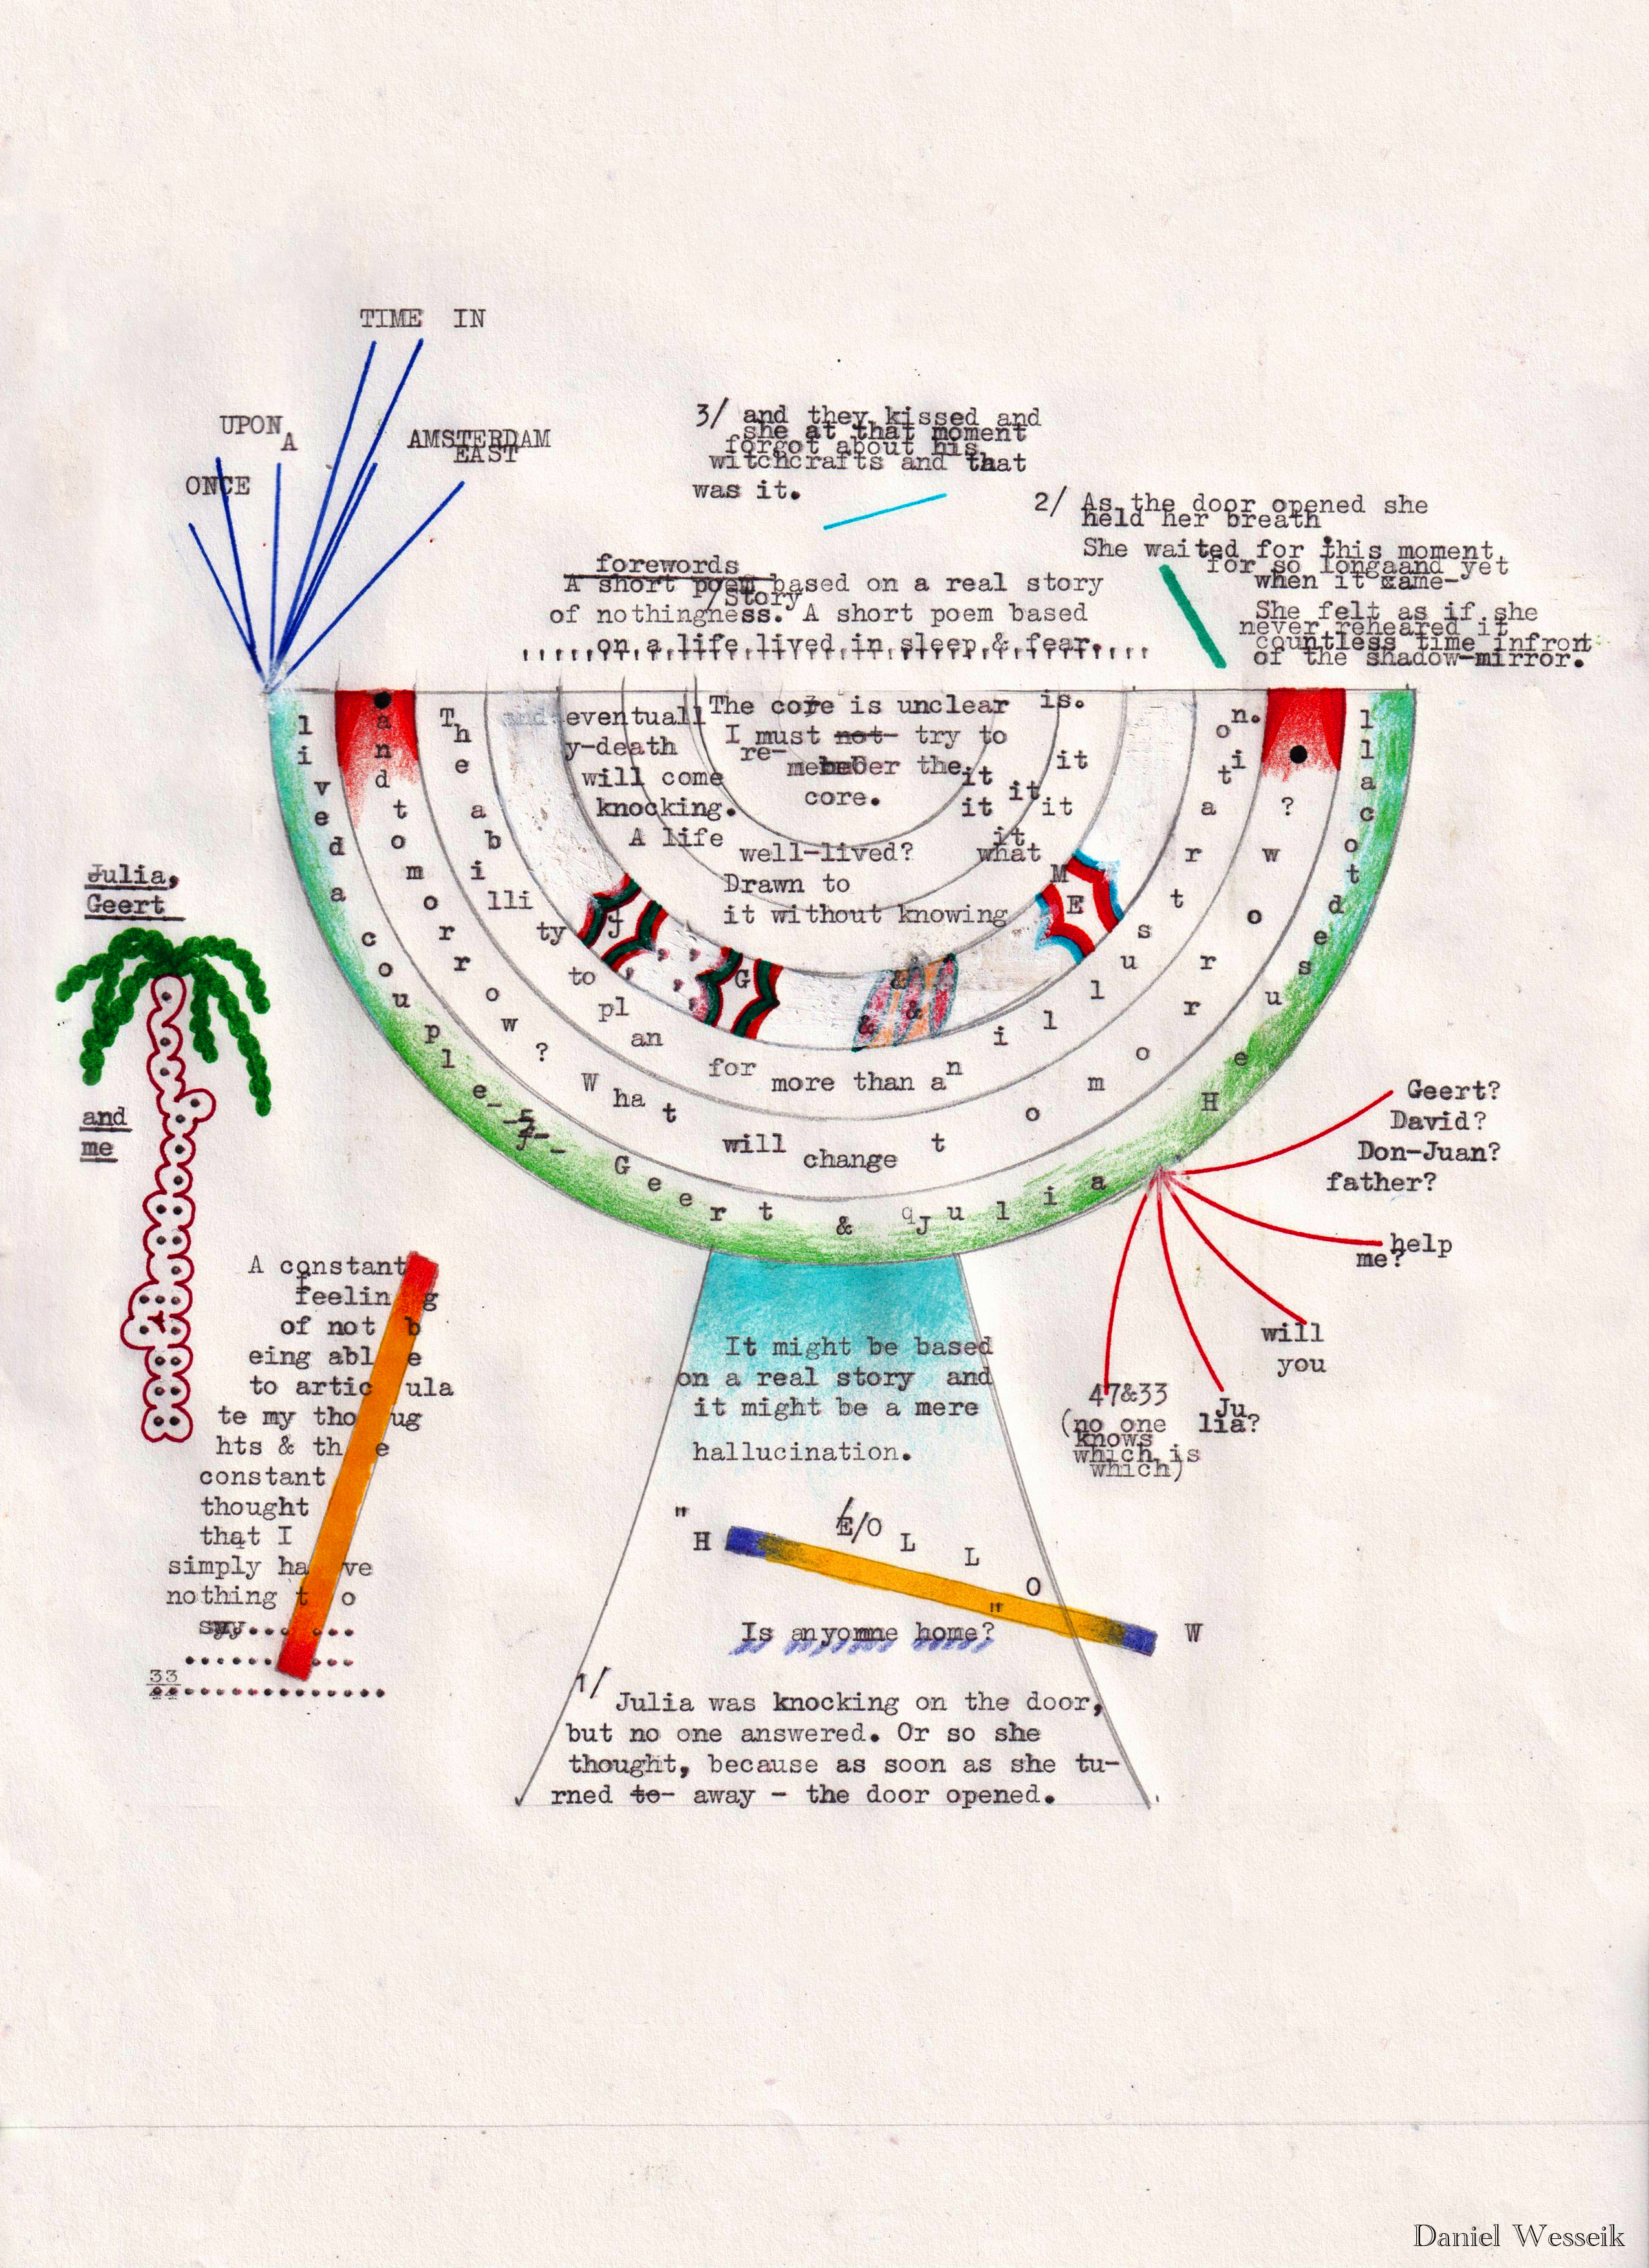 TIME IN
UPON
A
AMSTERDAM
EAST
ONCE
3/ and they kissed and
she at that moment
forgot about his
witchcrafts and that
was it.
2/ As the door opened she
held her breath
She waited for this moment
for so longaand yet
when it came-
She felt as if she
never reheared it
countless time infront
of the shadow-mirror.
forewords
A short poem based on a real story
/Story
of nothingness. A short poem based
on a life lived in sleep & fear.
lived a couple- - - Geert & Julia
He used to call
and tomorrow? What will change tomorrow?
The abillity to plan for more than an illustration.
and eventuall
y-death
will come
knocking.
A life
well-lived?
Drawn to
it without knowing
what
it
it
it
it
it
it
is.
The core is unclear
I must not try to
re-
member the
core.
J
G
&
&
&
M
E
Julia,
Geert
and
me
A constant
feeling
of not b
eing able
to articula
te my thoug
hts & the
constant
thought
that I
simply have
nothing to
say.......
33
Geert?
David?
Don-Juan?
father?
help
me?
will
you
Ju
lia?
47&33
(no one
knows
which is
which)
It might be based
on a real story and
it might be a mere
hallucination.
"H E/O L L O" W
Is anyomne home?
1/
Julia was knocking on the door,
but no one answered. Or so she
thought, because as soon as she tu-
rned to- away - the door opened.
Daniel Wesseik